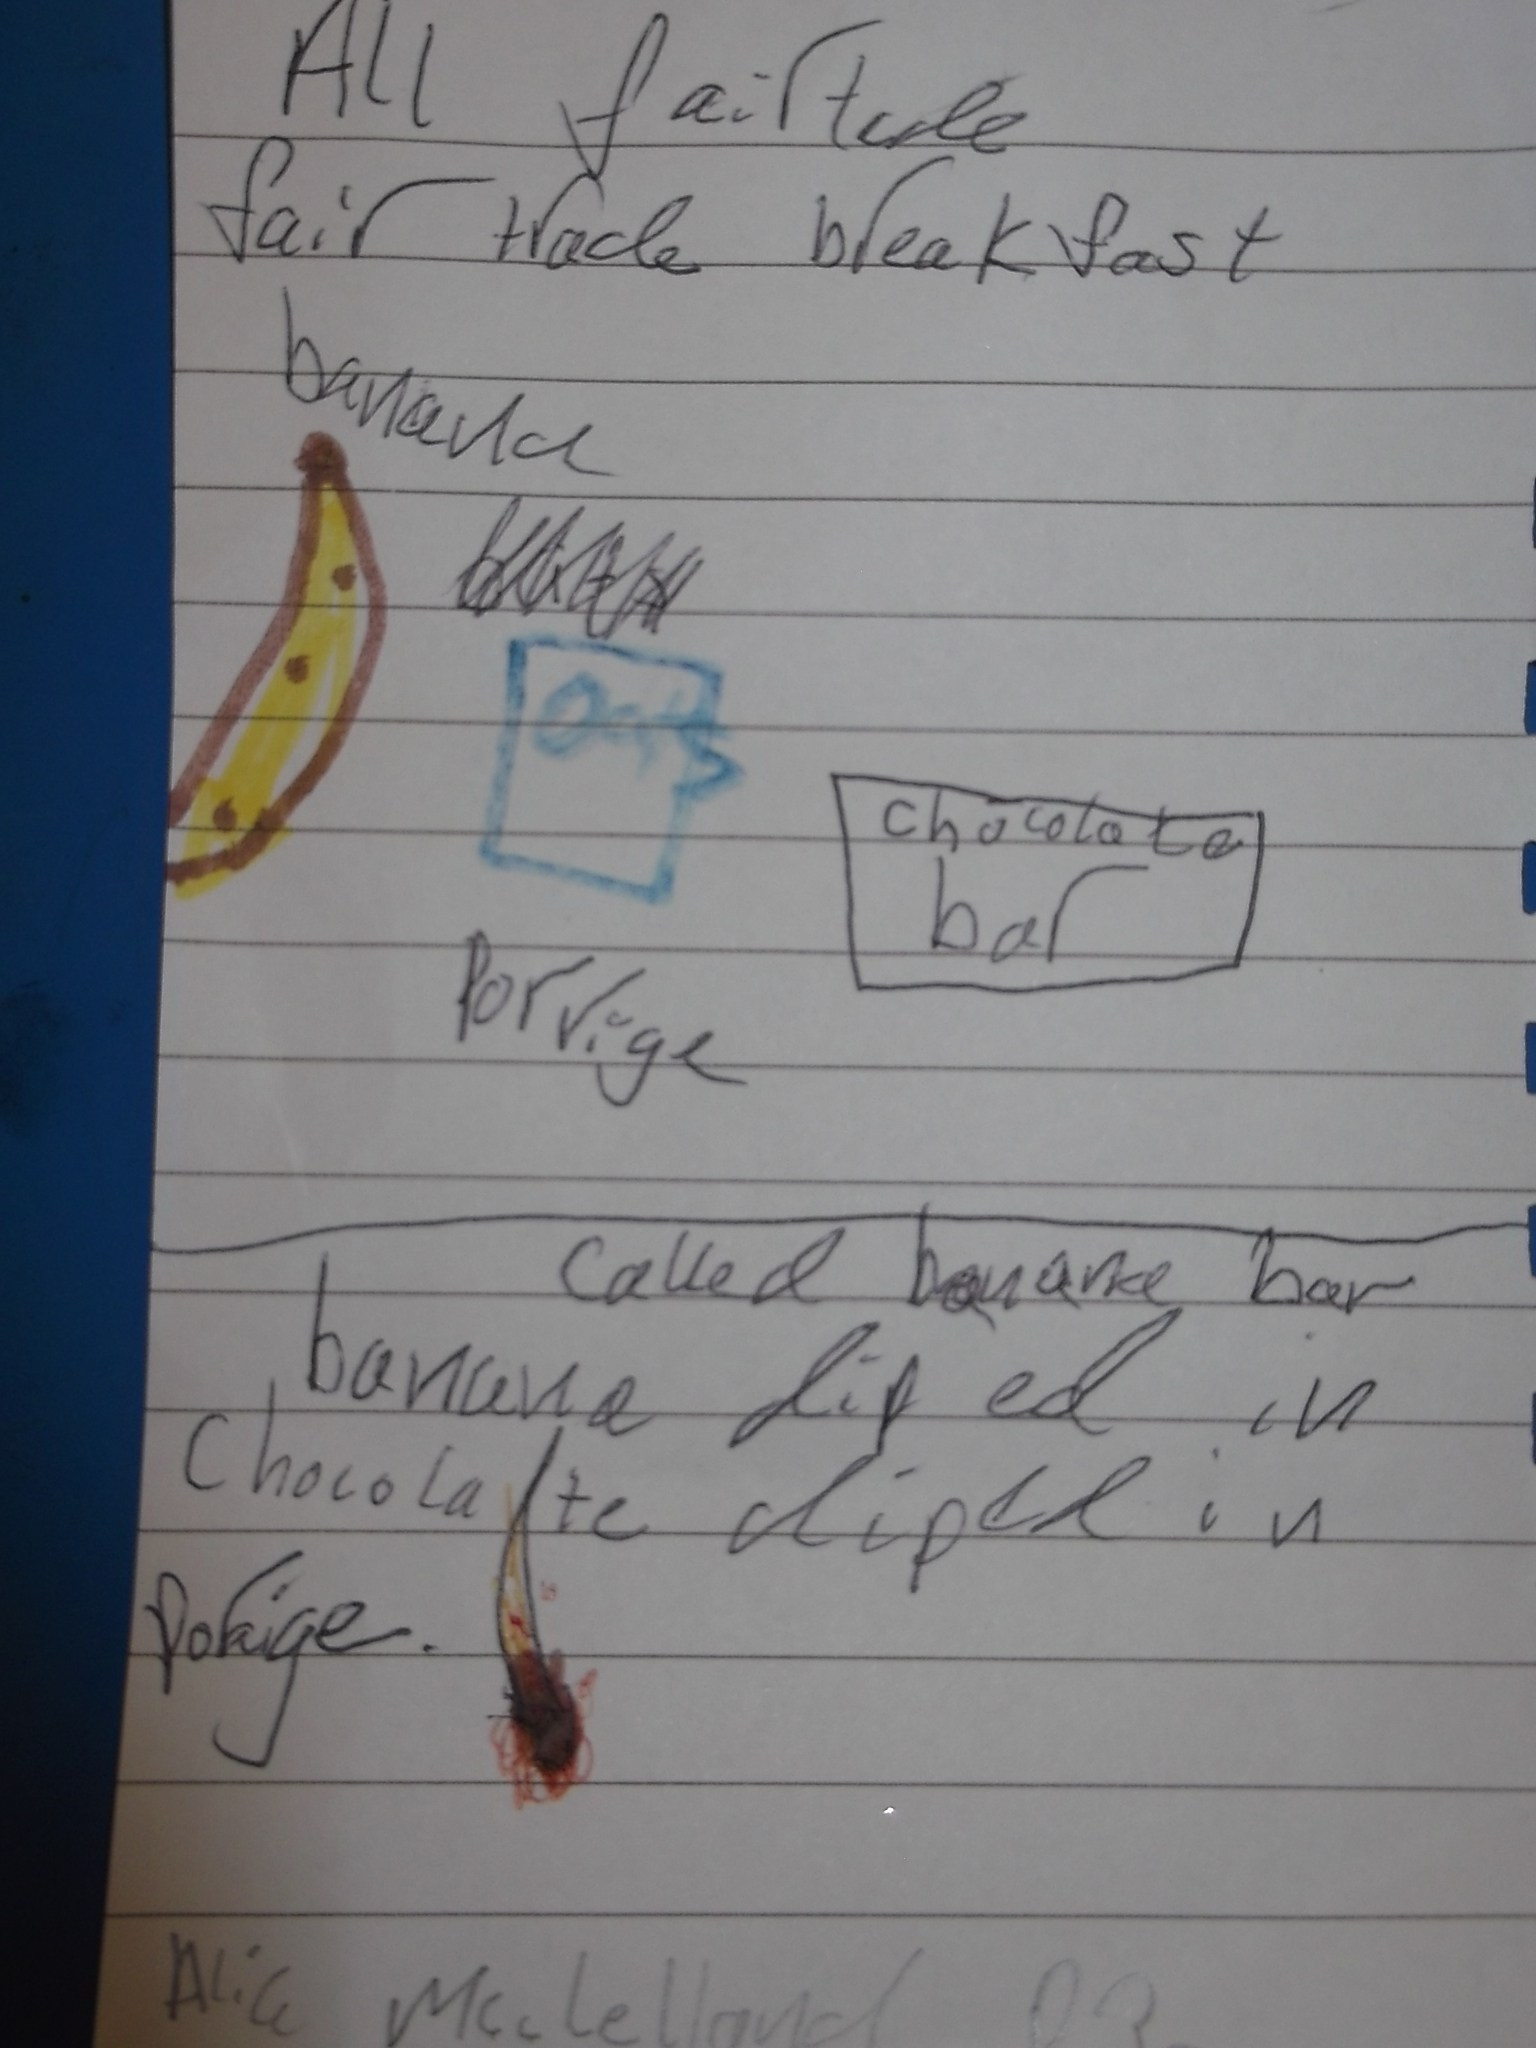 All fairtrde
fair trade breakfast
banana
Oats
chocolate
bar
Porrige
called banana bar
banana diped in
Chocolate diped in
porrige.